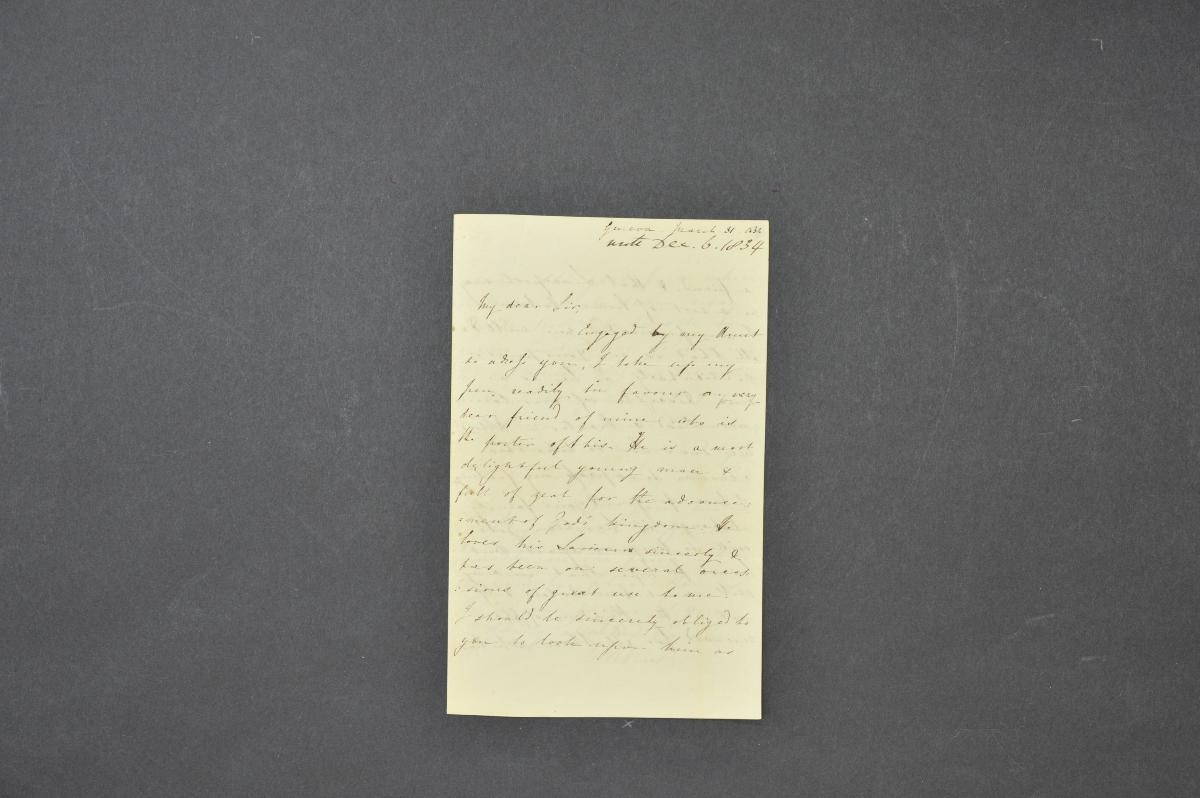 Geneva March 31 1834
wrote Dec. 6. 1834
My dear Sir,
Engaged by my Aunt
to adress you, I take up my
pen readily in favour of my very
dear friend of mine who is
the porter of this. He is a most
delightful young man &
full of zeal for the advance:
:ment of God's kingdom. He
loves his Saviour sincerely &
has been on several occas
:sions of great use to me.
I should be sincerely obliged to
you to look upon him as